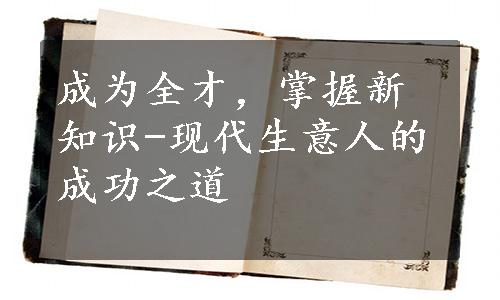 成为全才，掌握新
知识-现代生意人的
成功之道